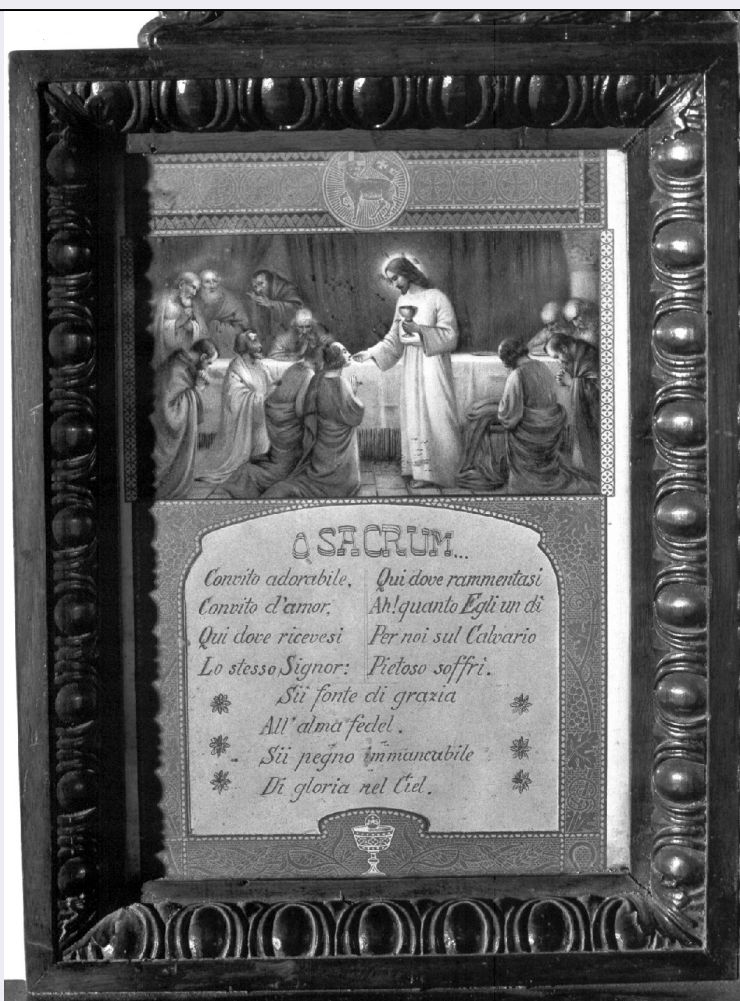 O SACRUM...
Convito adorabile,
Convito d'amor,
Qui dove ricevesi
Lo stesso Signor:
Qui dove rammentasi
Ah! quanto Egli un dì
Per noi sul Calvario
Pietoso soffrì.
Sii fonte di grazia
All'alma fedel.
Sii pegno immancabile
Di gloria nel Ciel.